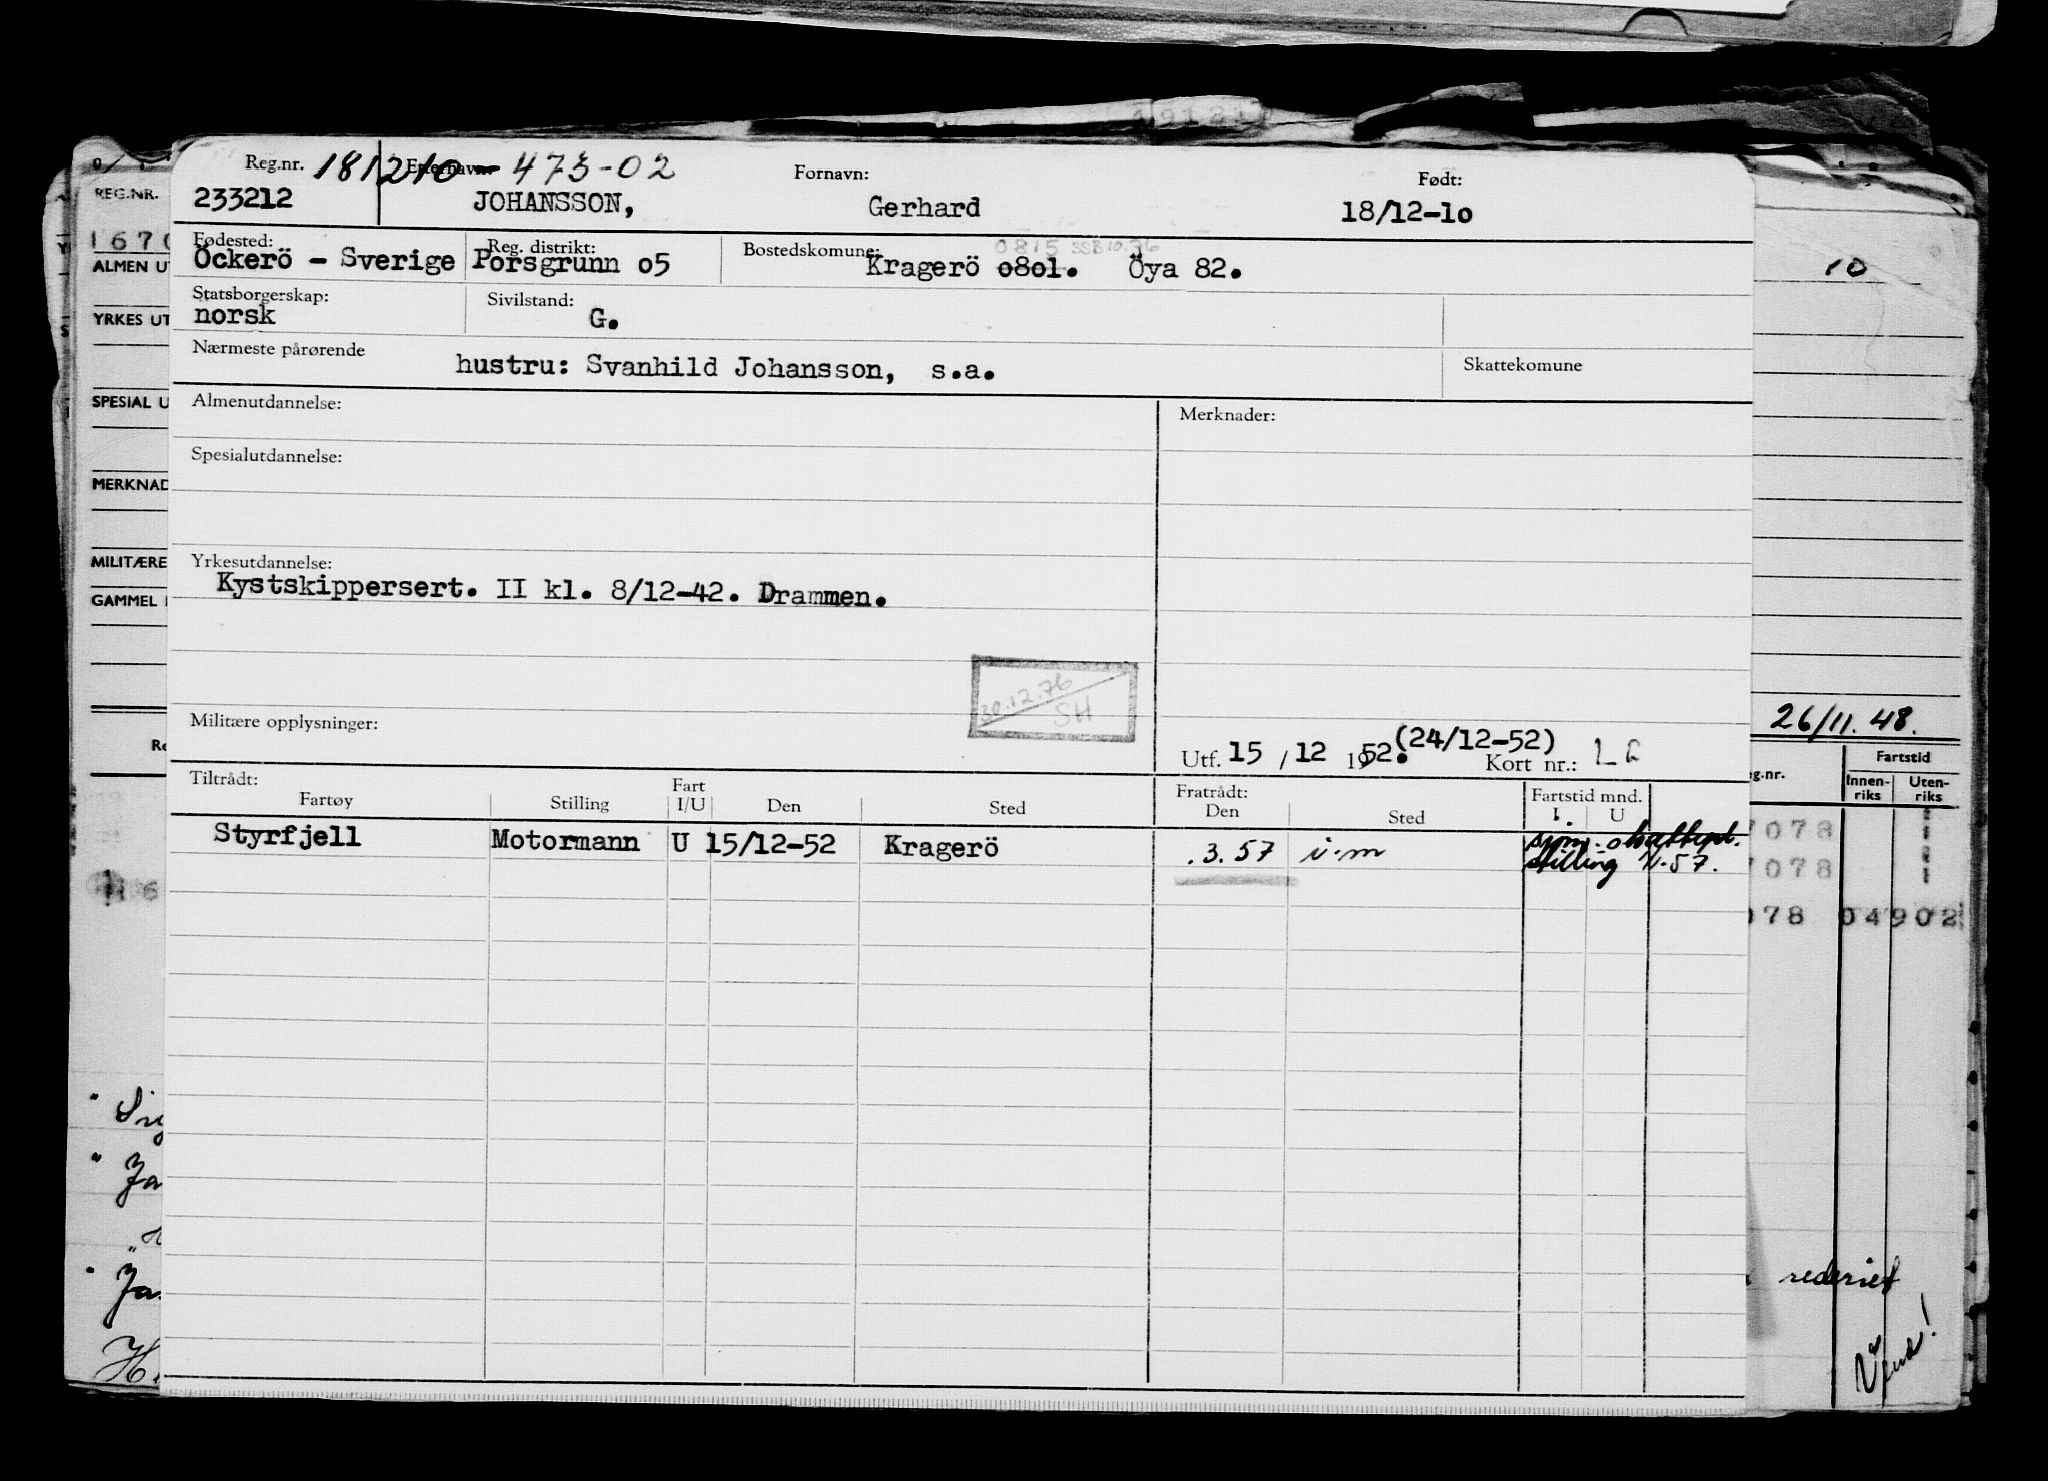 Reg.nr. 181210-473-02 Etternavn: Fornavn: Født:
233212 JOHANSSON, Gerhard 18/12-1o
Fødested: Reg. distrikt: Bostedskomune: 0815 SSB 10.76
Öckerö - Sverige Porsgrunn o5 Kragerö o8o1. Öya 82.
Statsborgerskap: Sivilstand:
norsk G.
Nærmeste pårørende Skattekomune
hustru: Svanhild Johansson, s.a.
Almenutdannelse: Merknader:
Spesialutdannelse:
Yrkesutdannelse:
Kystskippersert. II kl. 8/12-42. Drammen.
30.12.76
SH
Militære opplysninger:
Utf. 15 / 12 1952. (24/12-52) Kort nr.:
Tiltrådt: Fratrådt:
Fartøy Stilling Fart I/U Den Sted Den Sted Fartstid mnd. I. U
Styrfjell Motormann U 15/12-52 Kragerö .3.57 i.m
stilling 11.57.
REG.NR.
1670
ALMEN UT
YRKES UT
SPESIAL U
MERKNAD
MILITÆRE
GAMMEL
10
26/11.48.
g.nr. Fartstid
Innen-riks Uten-riks
7078
7078
078 04902
rederiet
Vend!